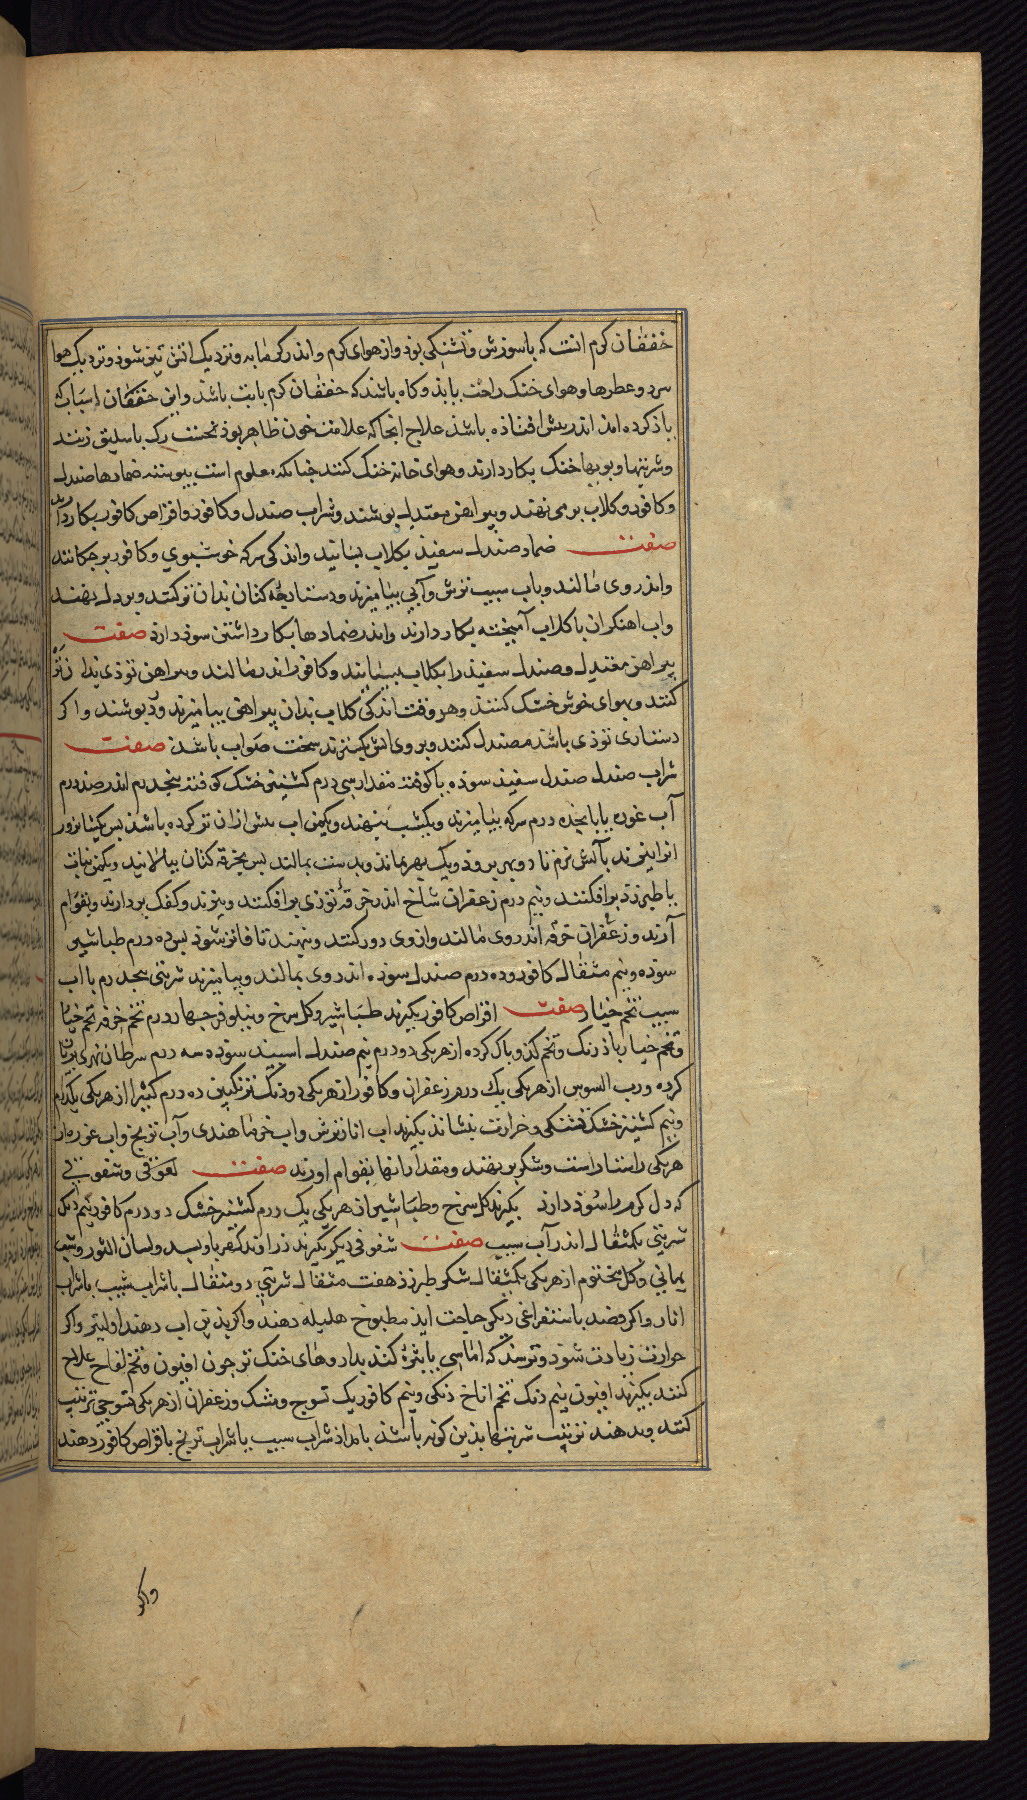 خفقان کرم انست که باسوزش وتشنکی بوذ واز هوای کرم واندر کرمابه ونزدیک اتش بتر شوذ ونزدیک هوا
سرد وعطرها وهوای خنک راحت یابذ وکاه باشد که خفقان کرم باتب باشذ واین خفقان اسبابی که
یاذ کرده امذ اندر بیش افتاذه باشذ علاج انجا که علامت خون ظاهر بوذ نخست رک باسلیق زنند
وشربتها وبویها خنک بکار دارند وهوای خانه خنک کنند جنانکه معلوم است بیوسته ضمادها صندل
وکافور وکلاب برمی نهند وبیراهن مصندل بوشند وشراب صندل وکافور واقراص کافور بکار دارند
صفت ضماد صندل سفیذ بکلاب بسایند واندکی سرکه خوشبوی وکافور برجکانند
واندر وی مالند وباب سیب ترش وآبی بیامیزند ودستارجه کتان بدان تر کنند وبر دل نهند
واب اهنکران باکلاب آمیخته بکار دارند واندر ضمادها بکار داشتن سوذ دارذ صفت
بیراهن مصندل وصندل سفیذ را بکلاب بسایند وکافور اندر مالند وبیراهن توذی بذان تر
کنند وبهوای خوش خشک کنند وهر وقت اندکی کلاب بدان بیراهن بیامیزند ودربوشند واکر
دستاری توذی باشذ مصندل کنند وبروی اتش بکسترند سخت صواب باشذ صفت
شراب صندل صندل سفیذ سوذه یاکوفته مقدار سی درم کشنیز خشک کوفته بنجدرم اندر صد درم
آب غوره یا بانجده درم سرکه بیامیزند ویکشب بنهند ویکمن اب بیش ازان تر کرده باشذ بس یکشبانروز
انرا بیزند بآتش نرم تا دوبهر بروذ ویک بهر بماند وبدست بمالند بس بخرقه کتان ببالایند ویکمن نبات
یا طبرزذ برافکنند ونیم درم زعفران شاخ اندر خرقهٔ توذی برافکنند وبزند وکفک بردارند وبقوام
آرند وزعفران خرقه اندر وی مالند وازوی دور کنند وبنهند تا فاتر شوذ بس ده درم طباشیر
سوذه ونیم مثقال کافور وده درم صندل سوذه اندر وی بمالند وبیامیزند شربتی بنجدرم با اب
سیب تخم خیار صفت اقراص کافور بکیرند طباشیر وکل سرخ ونیلوفر جهار درم تخم خرفه تخم خیار
وتخم خیار باذرنک وتخم کذو باک کرده از هریکی دودرم نیم صندل اسبید سوذه سه درم سرطان نهری بریان
کرده ورب السوس از هریکی یک درم زعفران وکافور از هریکی دودنک ترنکبین ده درم کتیرا از هریکی یکدرم
ونیم کشنیز خشک تشنکی وحرارت بنشاند بکیرند اب انار ترش واب خرما هندی وآب ترنج واب غوره از
هریکی راستاراست وشکر برنهند ومقدار انها بقوام اورند صفت لعوقی وسفوفی
که دل کرم را سوذ دارذ بکیرند کل سرخ وطباشیر از هریکی یک درم کشنیز خشک دودرم کافور نیم دنک
شربتی یکمثقال اندر آب سیب صفت سفوفی دیکر بکیرند زراوند کهربا وبسد ولسان الثور وشب
یمانی وکل مختوم از هریکی یکمثقال شکر طبرزذ هفت مثقال شربتی دو مثقال باشراب سیب یا شراب
انار واکر فصد یا استفراغی دیکر حاجت ایذ مطبوخ هلیله دهند واکر بذین اب دهند اولیتر واکر
حرارت زیادت شوذ وترسند که اماسی یا بثرهٔ کند بداروهای خنک تر جون افیون وتخم لفاح علاج
کنند بکیرند افیون نیم دنک تخم اناخ دنکی ونیم کافور یک تسوج ومشک وزعفران از هریکی تسوجی ترتیب
کنند وبدهند ترتیب شربتها بذین کونه باشذ بامداذ شراب سیب یا شراب ترنج با قراص کافور دهند
واکر